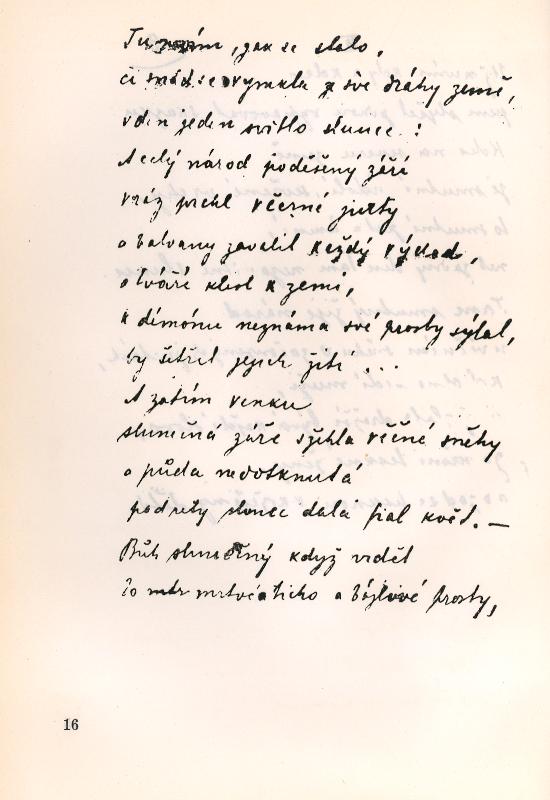 Tu nevím, jak se stalo,
či snad se vymkla z své dráhy země,
v den jeden svitlo slunce!
A celý národ poděšený září
vráz prchl v černé jurty
a balvany zavalil každý východ,
a tváře klesl k zemi,
k démónu neznáma své prosby sýlal,
by šetřil jejich žití ...
A zatím venku
sluneční záře sžehla věčné sněhy
a půda nedotknutá
pod rety slunce dala fial květ. —
Bůh slunečný když viděl
to mrtvé ticho a bájlivé prosby,
16